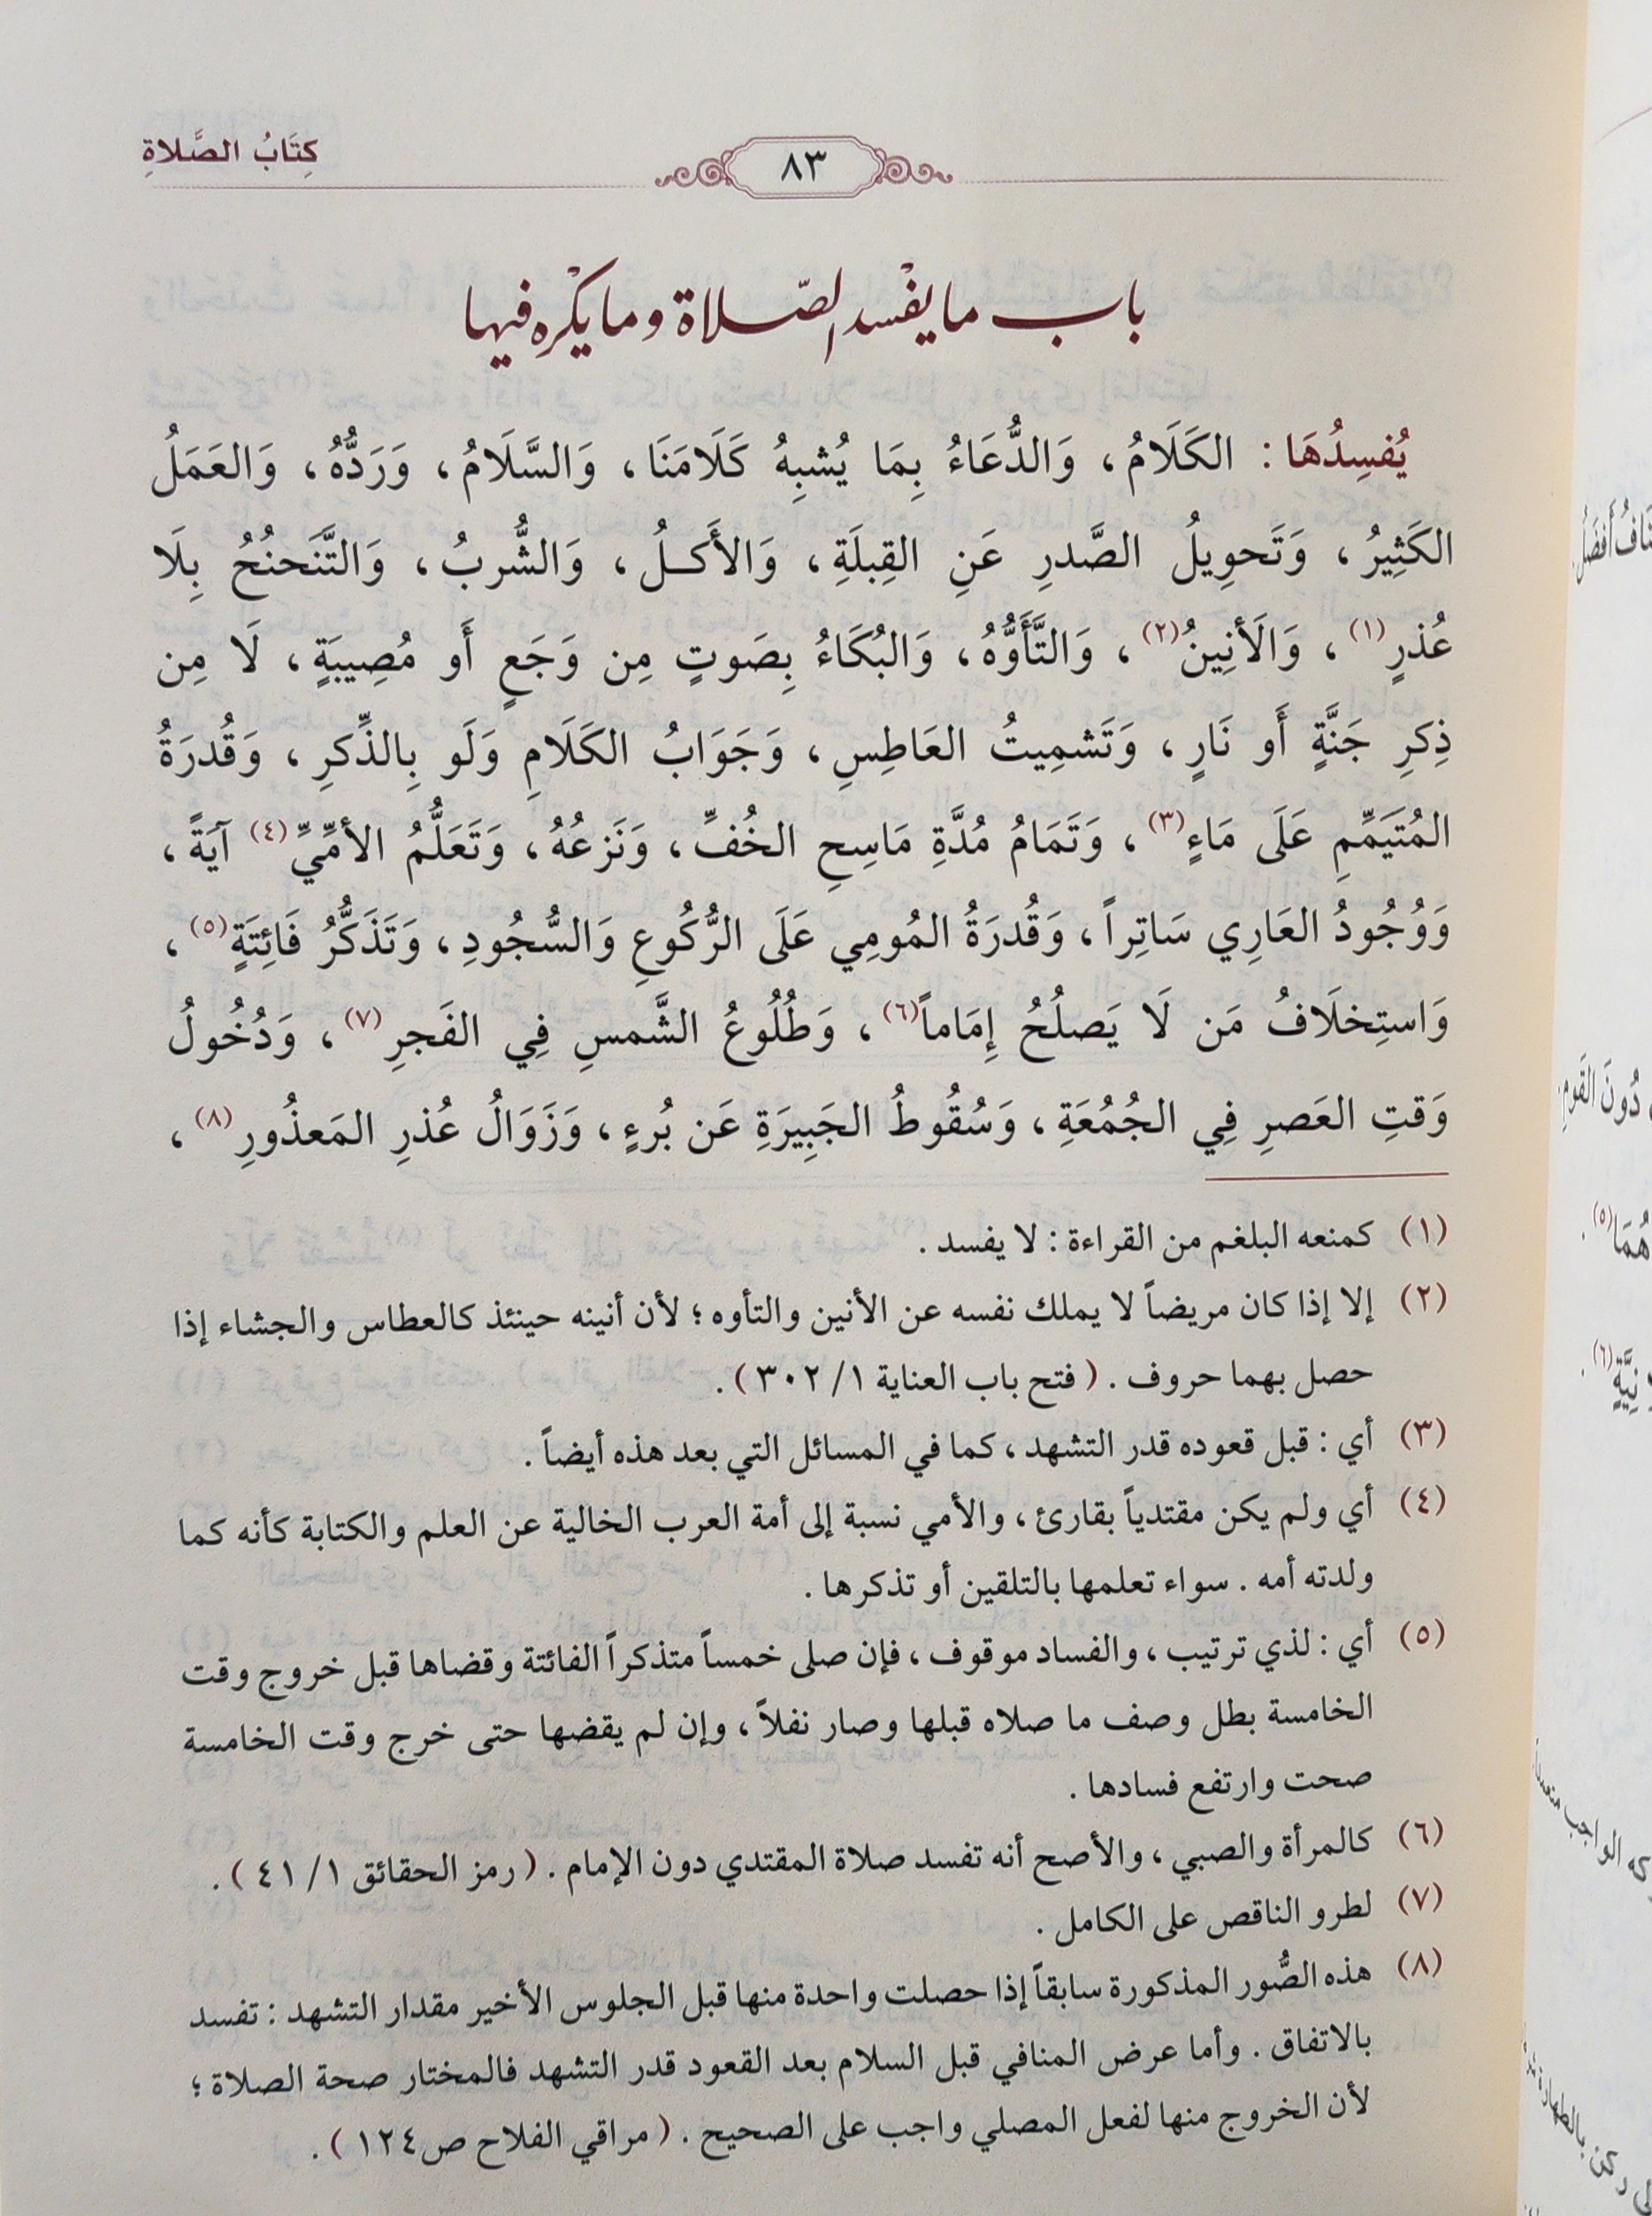 كِتَابُ الصَّلَاةِ
٨٣
باب ما يفسد الصّلاة وما يكره فيها
يُفسِدُهَا : الكَلَامُ ، وَالدُّعَاءُ بِمَا يُشبِهُ كَلَامَنَا ، وَالسَّلَامُ ، وَرَدُّهُ ، وَالعَمَلُ
الكَثِيرُ ، وَتَحوِيلُ الصَّدرِ عَنِ القِبلَةِ ، وَالأَكـلُ ، وَالشُّربُ ، وَالتَّنَحنُحُ بِلَا
عُذرٍ(١) ، وَالَأنِينُ(٢) ، وَالتَّأَوُّهُ ، وَالبُكَاءُ بِصَوتٍ مِن وَجَعٍ أَو مُصِيبَةٍ ، لَا مِن
ذِكرِ جَنَّةٍ أَو نَارٍ ، وَتَشمِيتُ العَاطِسِ ، وَجَوَابُ الكَلَامِ وَلَو بِالذِّكرِ ، وَقُدرَةُ
المُتَيَمِّمِ عَلَى مَاءٍ(٣) ، وَتَمَامُ مُدَّةِ مَاسِحِ الخُفِّ ، وَنَزعُهُ ، وَتَعَلُّمُ الأمِّيِّ(٤) آيَةً ،
وَوُجُودُ العَارِي سَاتِراً ، وَقُدرَةُ المُومِي عَلَى الرُّكُوعِ وَالسُّجُودِ ، وَتَذَكُّرُ فَائِتَةٍ(٥) ،
وَاستِخلَافُ مَن لَا يَصلُحُ إِمَاماً(٦) ، وَطُلُوعُ الشَّمسِ فِي الفَجرِ(٧) ، وَدُخُولُ
وَقتِ العَصرِ فِي الجُمُعَةِ ، وَسُقُوطُ الجَبِيرَةِ عَن بُرءٍ ، وَزَوَالُ عُذرِ المَعذُورِ(٨) ،
(١) كمنعه البلغم من القراءة : لا يفسد .
(٢) إلا إذا كان مريضاً لا يملك نفسه عن الأنين والتأوه ؛ لأن أنينه حينئذ كالعطاس والجشاء إذا
حصل بهما حروف . ( فتح باب العناية ١/ ٣٠٢ ) .
(٣) أي : قبل قعوده قدر التشهد ، كما في المسائل التي بعد هذه أيضاً .
(٤) أي ولم يكن مقتدياً بقارئ ، والأمي نسبة إلى أمة العرب الخالية عن العلم والكتابة كأنه كما
ولدته أمه . سواء تعلمها بالتلقين أو تذكرها .
(٥) أي : لذي ترتيب ، والفساد موقوف ، فإن صلى خمساً متذكراً الفائتة وقضاها قبل خروج وقت
الخامسة بطل وصف ما صلاه قبلها وصار نفلاً ، وإن لم يقضها حتى خرج وقت الخامسة
صحت وارتفع فسادها .
(٦) كالمرأة والصبي ، والأصح أنه تفسد صلاة المقتدي دون الإمام . ( رمز الحقائق ١/ ٤١ ) .
(٧) لطرو الناقص على الكامل .
(٨) هذه الصُّور المذكورة سابقاً إذا حصلت واحدة منها قبل الجلوس الأخير مقدار التشهد : تفسد
بالاتفاق . وأما عرض المنافي قبل السلام بعد القعود قدر التشهد فالمختار صحة الصلاة ؛
لأن الخروج منها لفعل المصلي واجب على الصحيح . ( مراقي الفلاح ص١٢٤ ) .